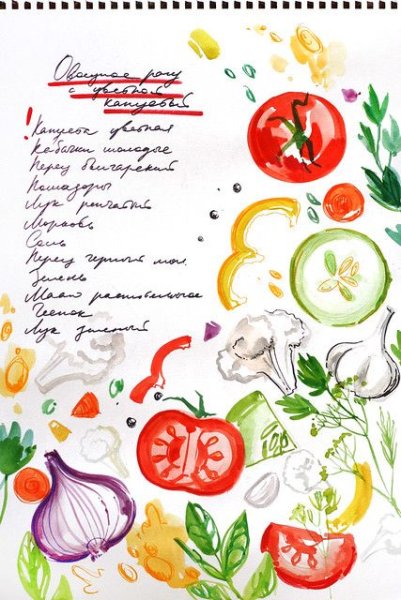 Овощное рагу
с цветной
капустой
! Капуста цветная
Кабачки молодые
Перец болгарский
Помидоры
Лук репчатый
Морковь
Соль
Перец черный мол.
Зелень
Масло растительное
Чеснок
Лук зеленый